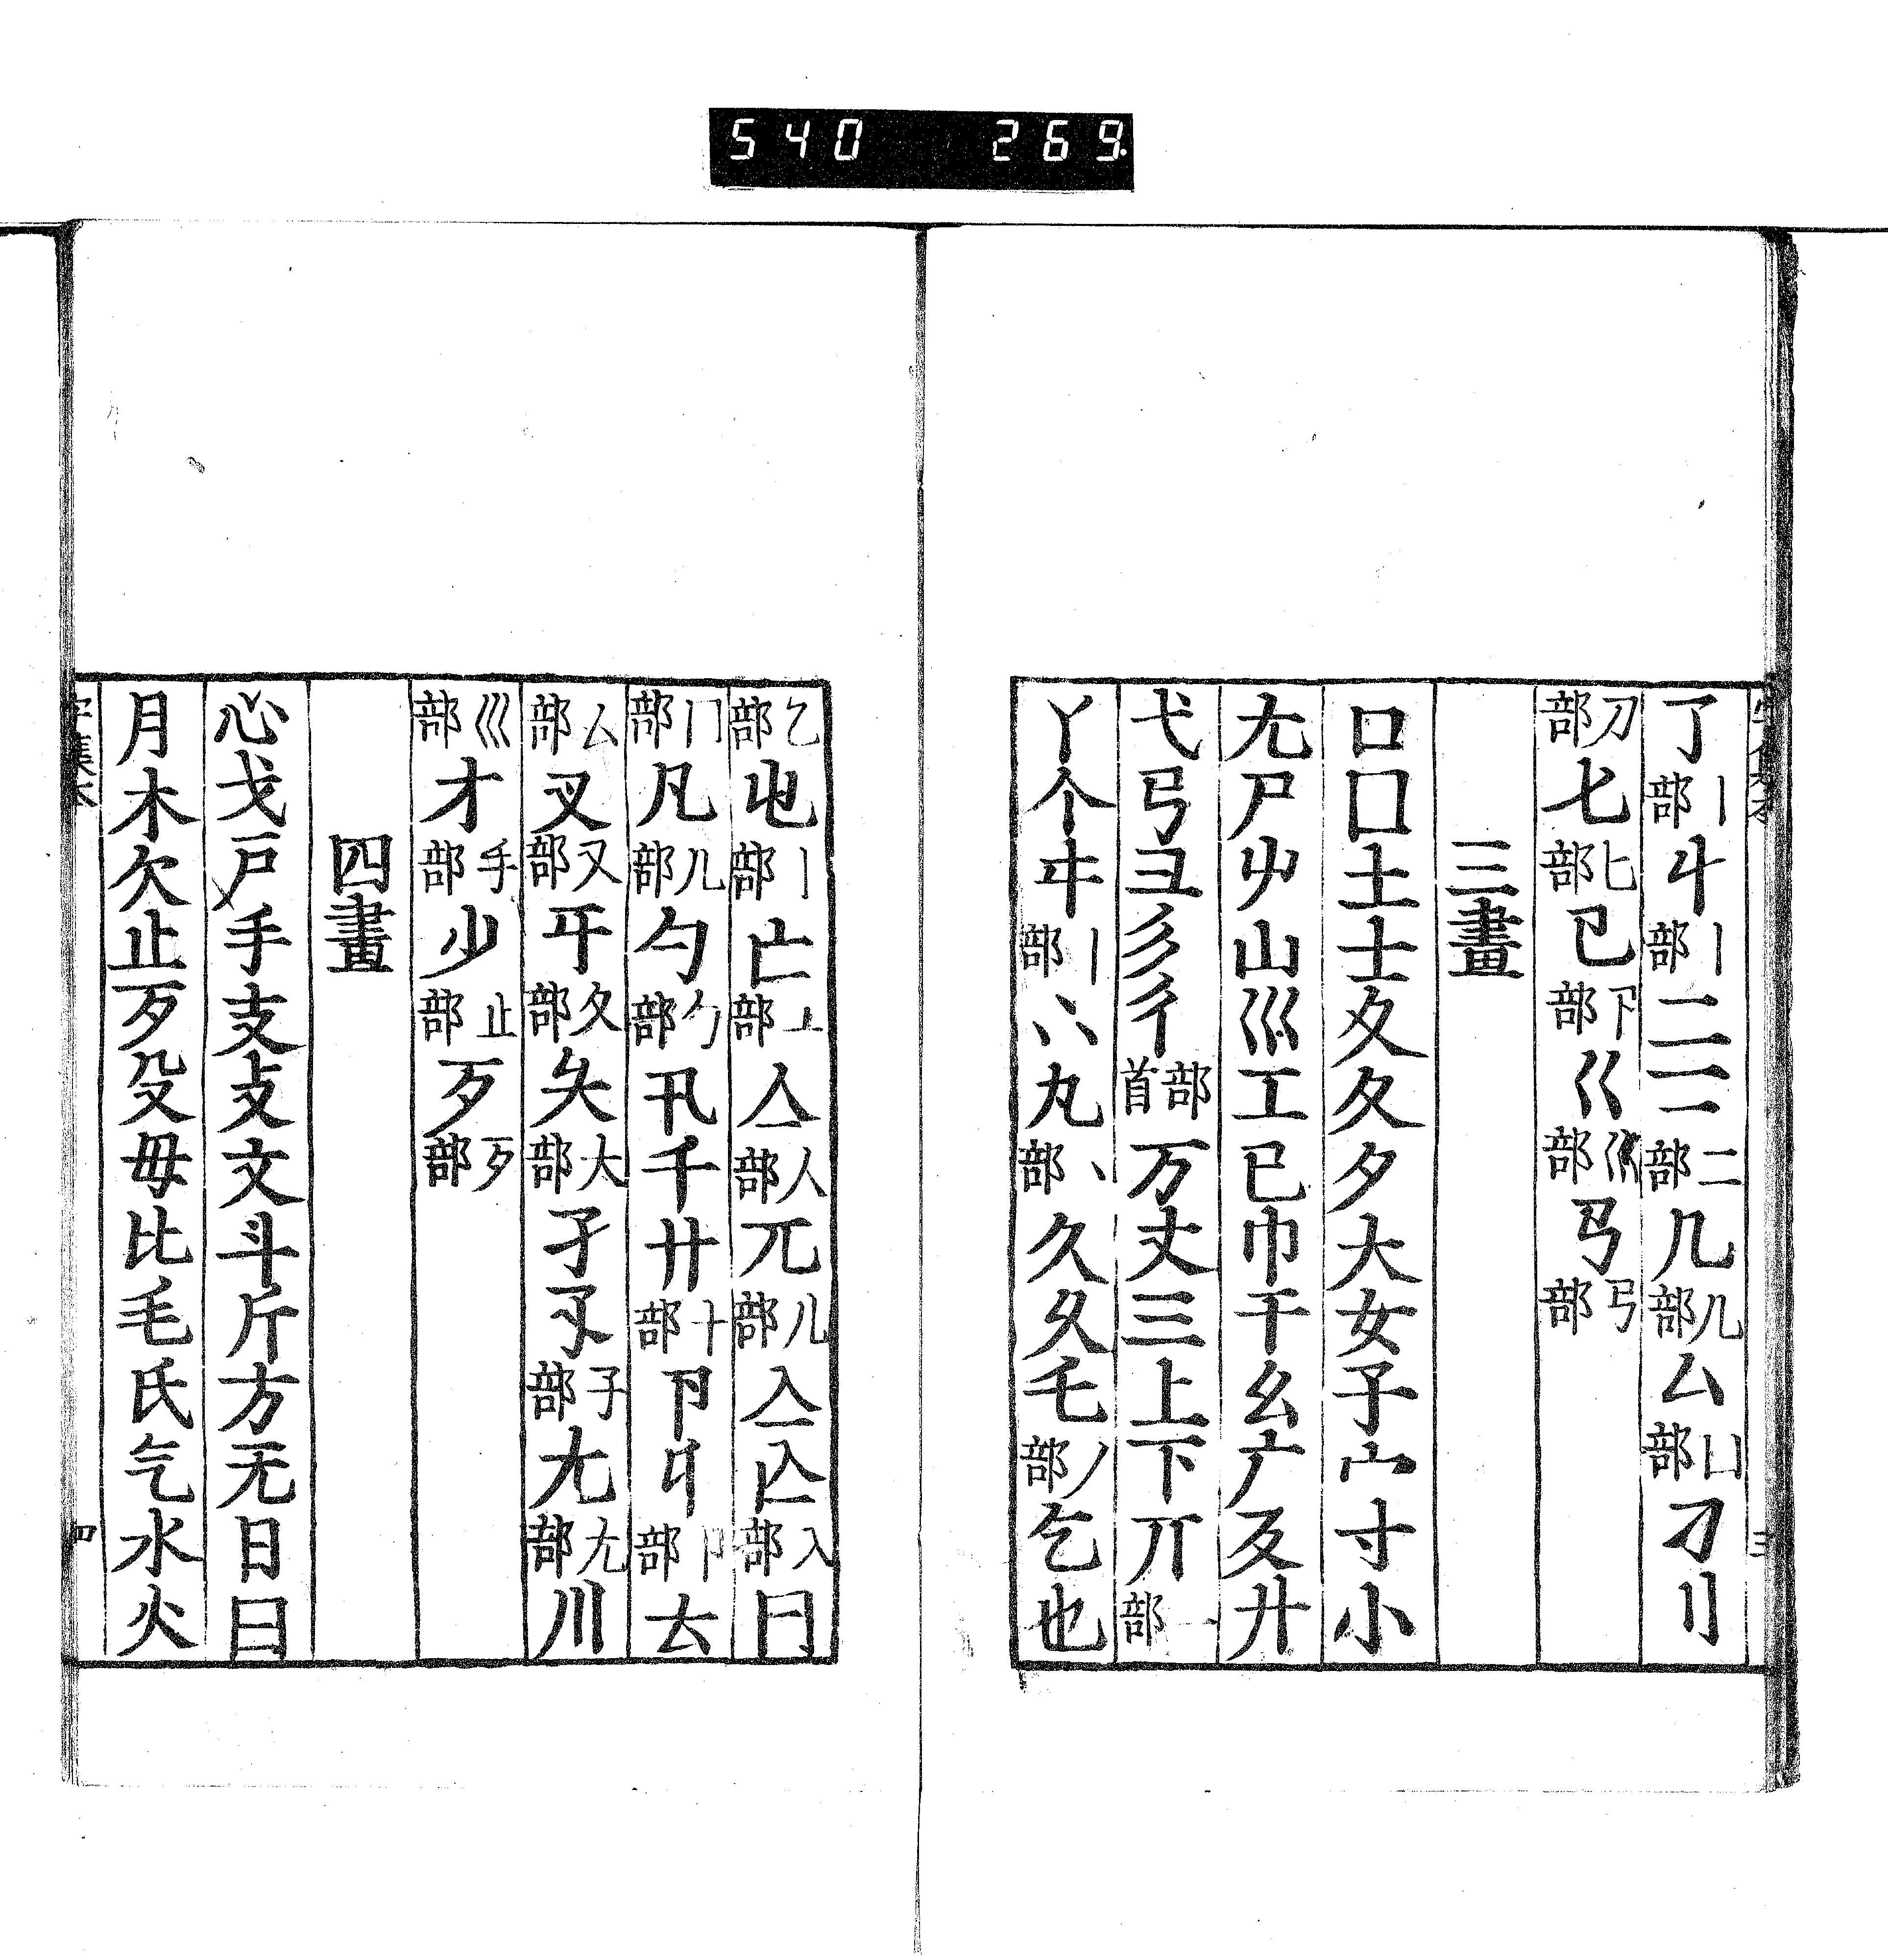 540 269.
了丨部丩丨部二二二部几几部厶凵部刁刂
刀部七匕部㔾卩部巜巛部㢧弓部
三畫
口囗土士夂夊夕大女子宀寸小
尢尸屮山巛工已巾干幺广廴廾
弋弓彐彡彳部首万丈三上下丌一部
丫个㐄丨部丸丶部久夂乇丿部乞也
乙部㞢丨部亡亠部亼人部兀儿部亼亾入部冃
冂部凡几部勺勹部卂千廾十部卪卩部去
厶部叉又部㐄夂部夨大部孑孓子部尢尢部川
巛部才手部少止部歹歹部
四畫
心戈戶手支攴文斗斤方无日曰
月木欠止歹殳毋比毛氏气水火
三
四